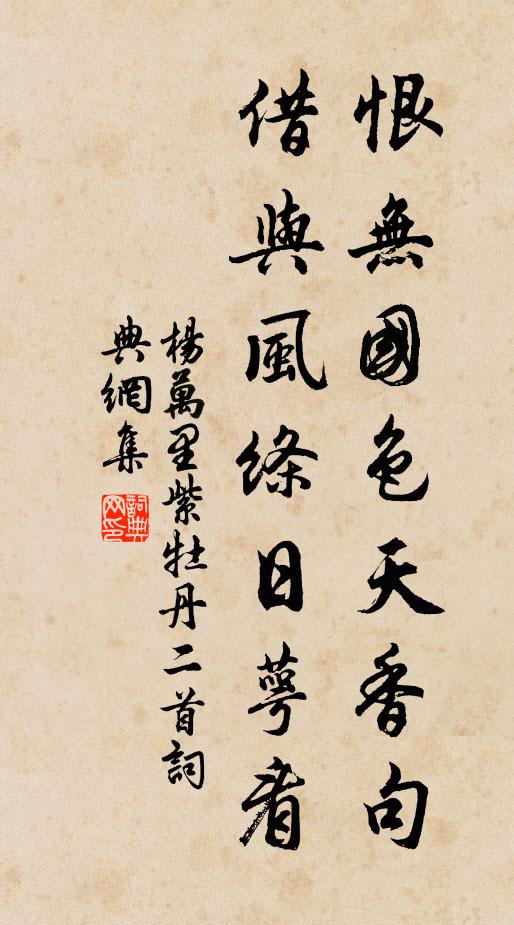 恨無國色天香句
借與風絛日萼看
楊萬里紫牡丹二首詞
典網集
詞典網印